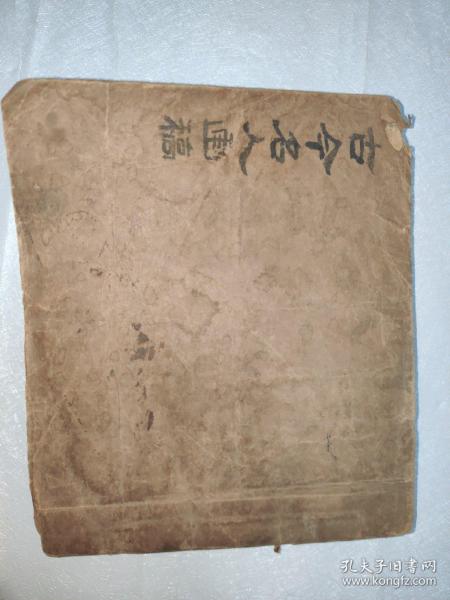 古今名人画稿
孔夫子旧书网
www.kongfz.com